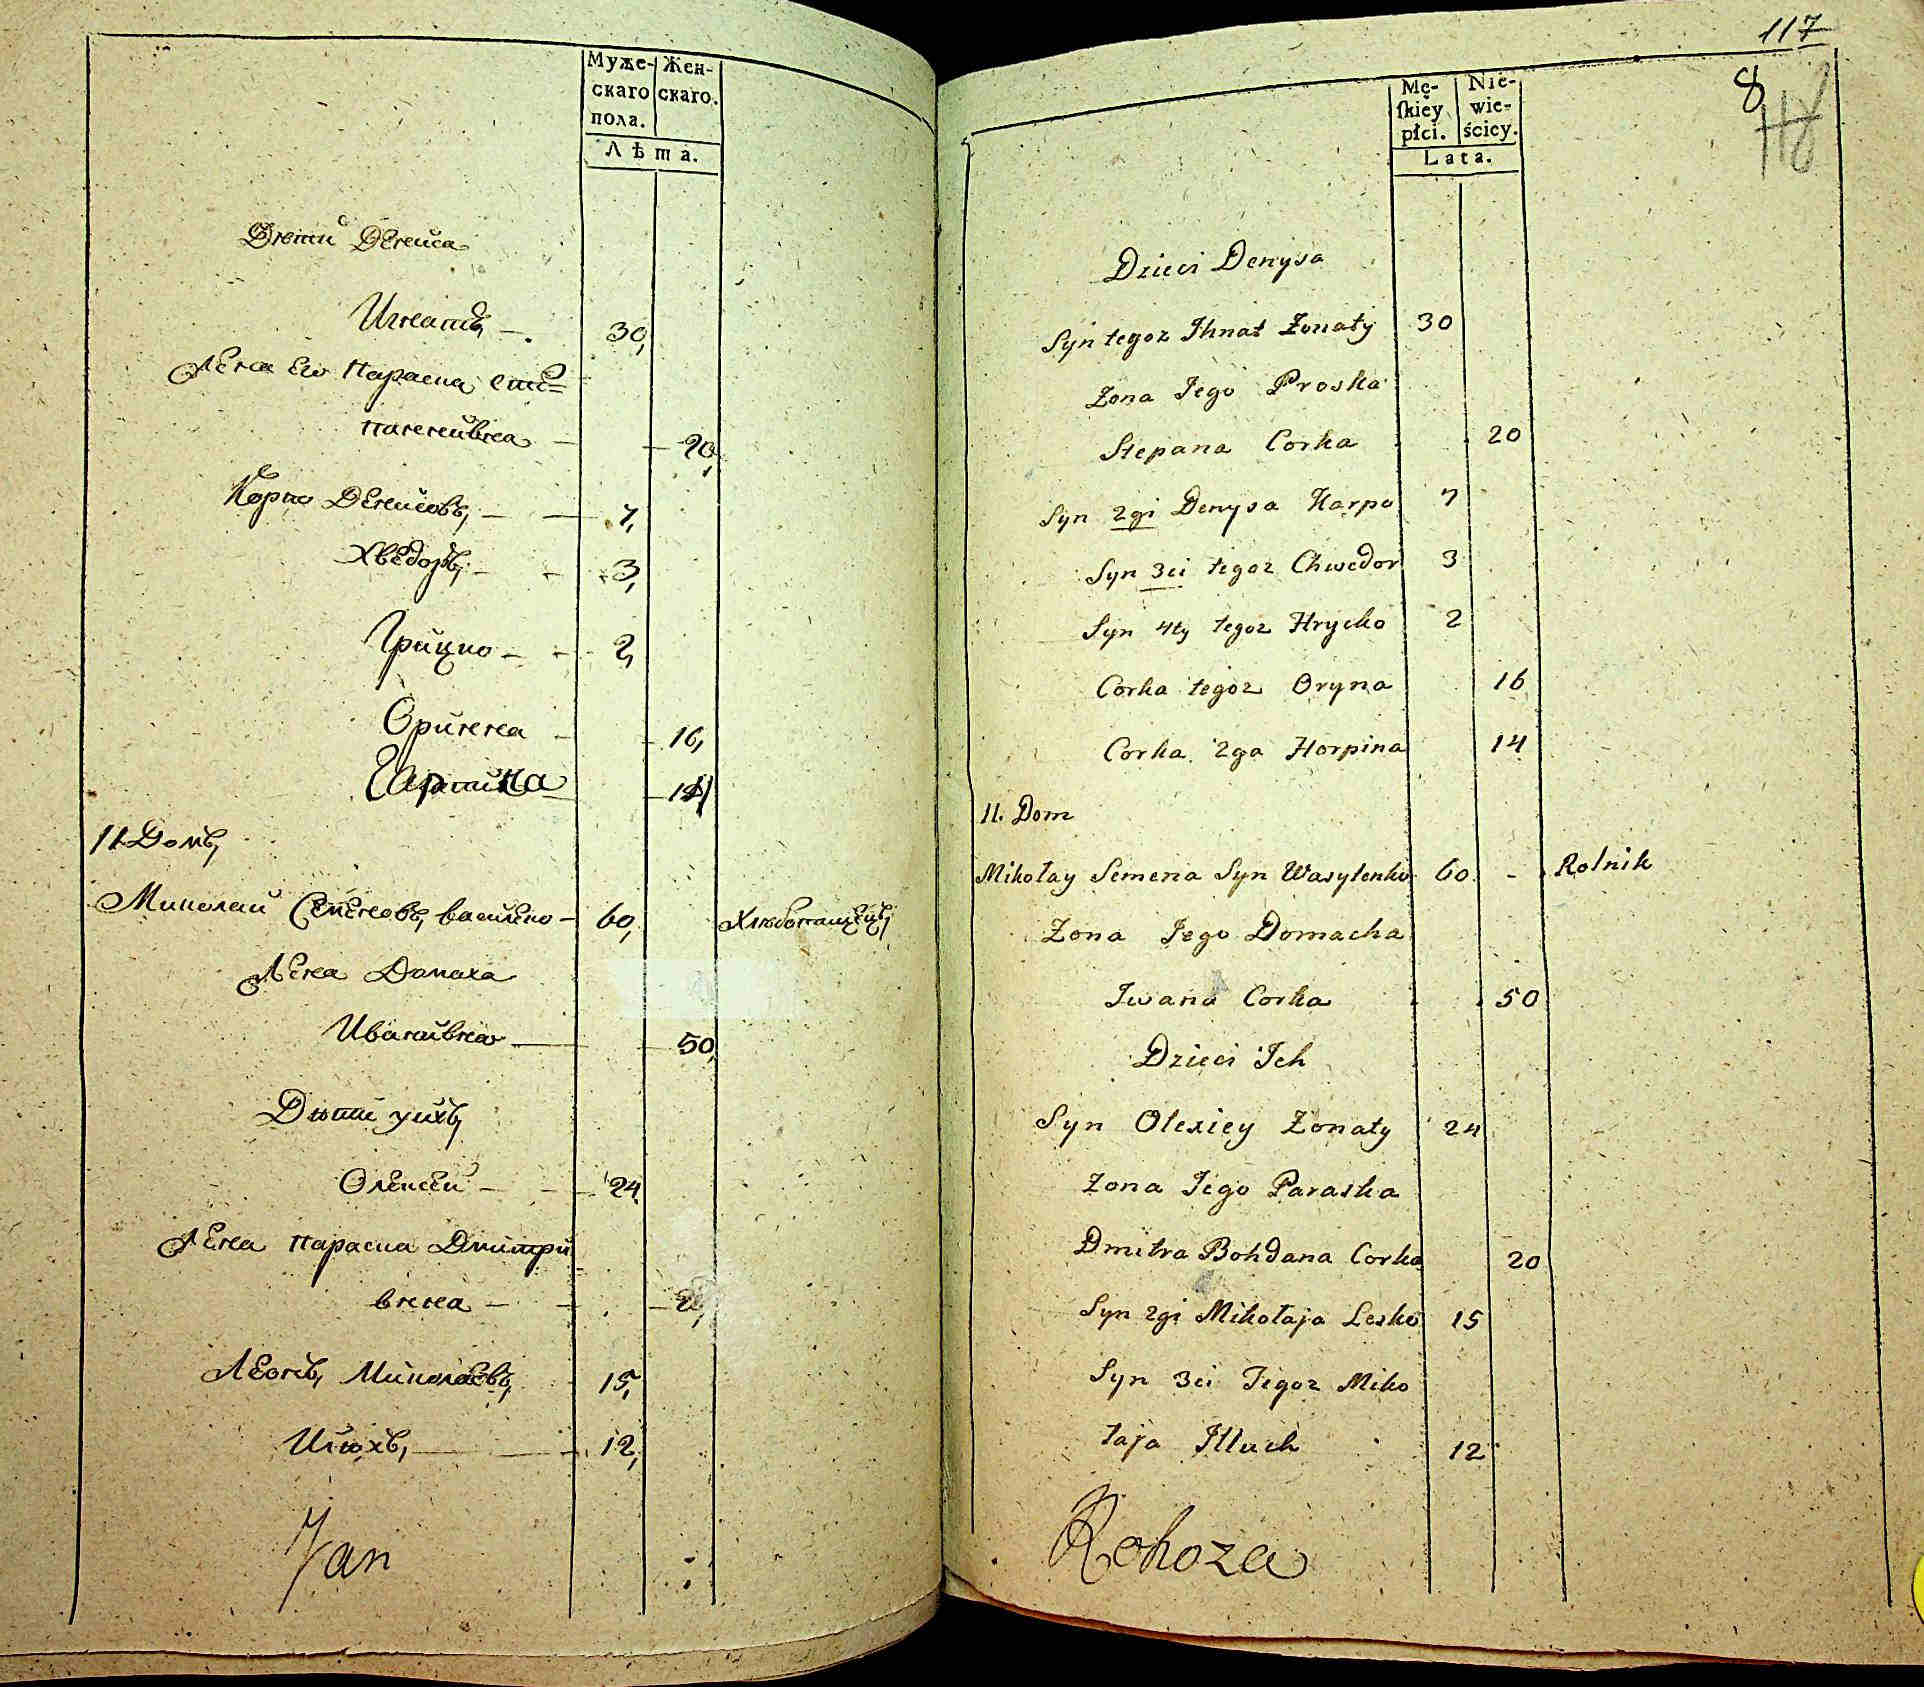 Муже- Жен-
скаго скаго.
пола.
Лѣта.
Дѣти Дениса
Игнатъ — 30,
Жена Его Параска сте=
паненкивна — 20,
Корпо Денисовъ, — 7,
Хведоръ, — 3,
Грицко — 2,
Оринна 16,
Гарпина 14
11 Домъ,
Миколай Семеновъ, василенко — 60, Хлѣбопашецъ,
Жена Домаха
Иванивна — 50,
Дѣти ихъ,
Олексей — 24,
Жена параска Дмитри
вная — 20,
Леонъ, Миколаевъ, 15,
Илюхъ, — 12,
Jan
117
8
Mę- Nie-
ſkiey wie-
płci. ściey.
Lata.
Dzieci Denysa
Syn tegoz Ihnat Zonaty 30
Zona Jego Proska
Stepana Corka 20
Syn 2gi Denysa Karpo 7
Syn 3ci tegoz Chwedor 3
Syn 4ty tegoz Hrycko 2
Corka tegoz Oryna 16
Corka 2ga Horpina 14
11. Dom
Mikołay Semena Syn Wasylenko 60. - Rolnik
Zona Jego Domacha
Iwana Corka 50
Dzieci Ich
Syn Olexiey Zonaty 24
Zona Jego Paraska
Dmitra Bohdana Corka 20
Syn 2gi Mikołaja Lesko 15
Syn 3ci Tegoz Miko
łaja Illuch 12
Rohoza